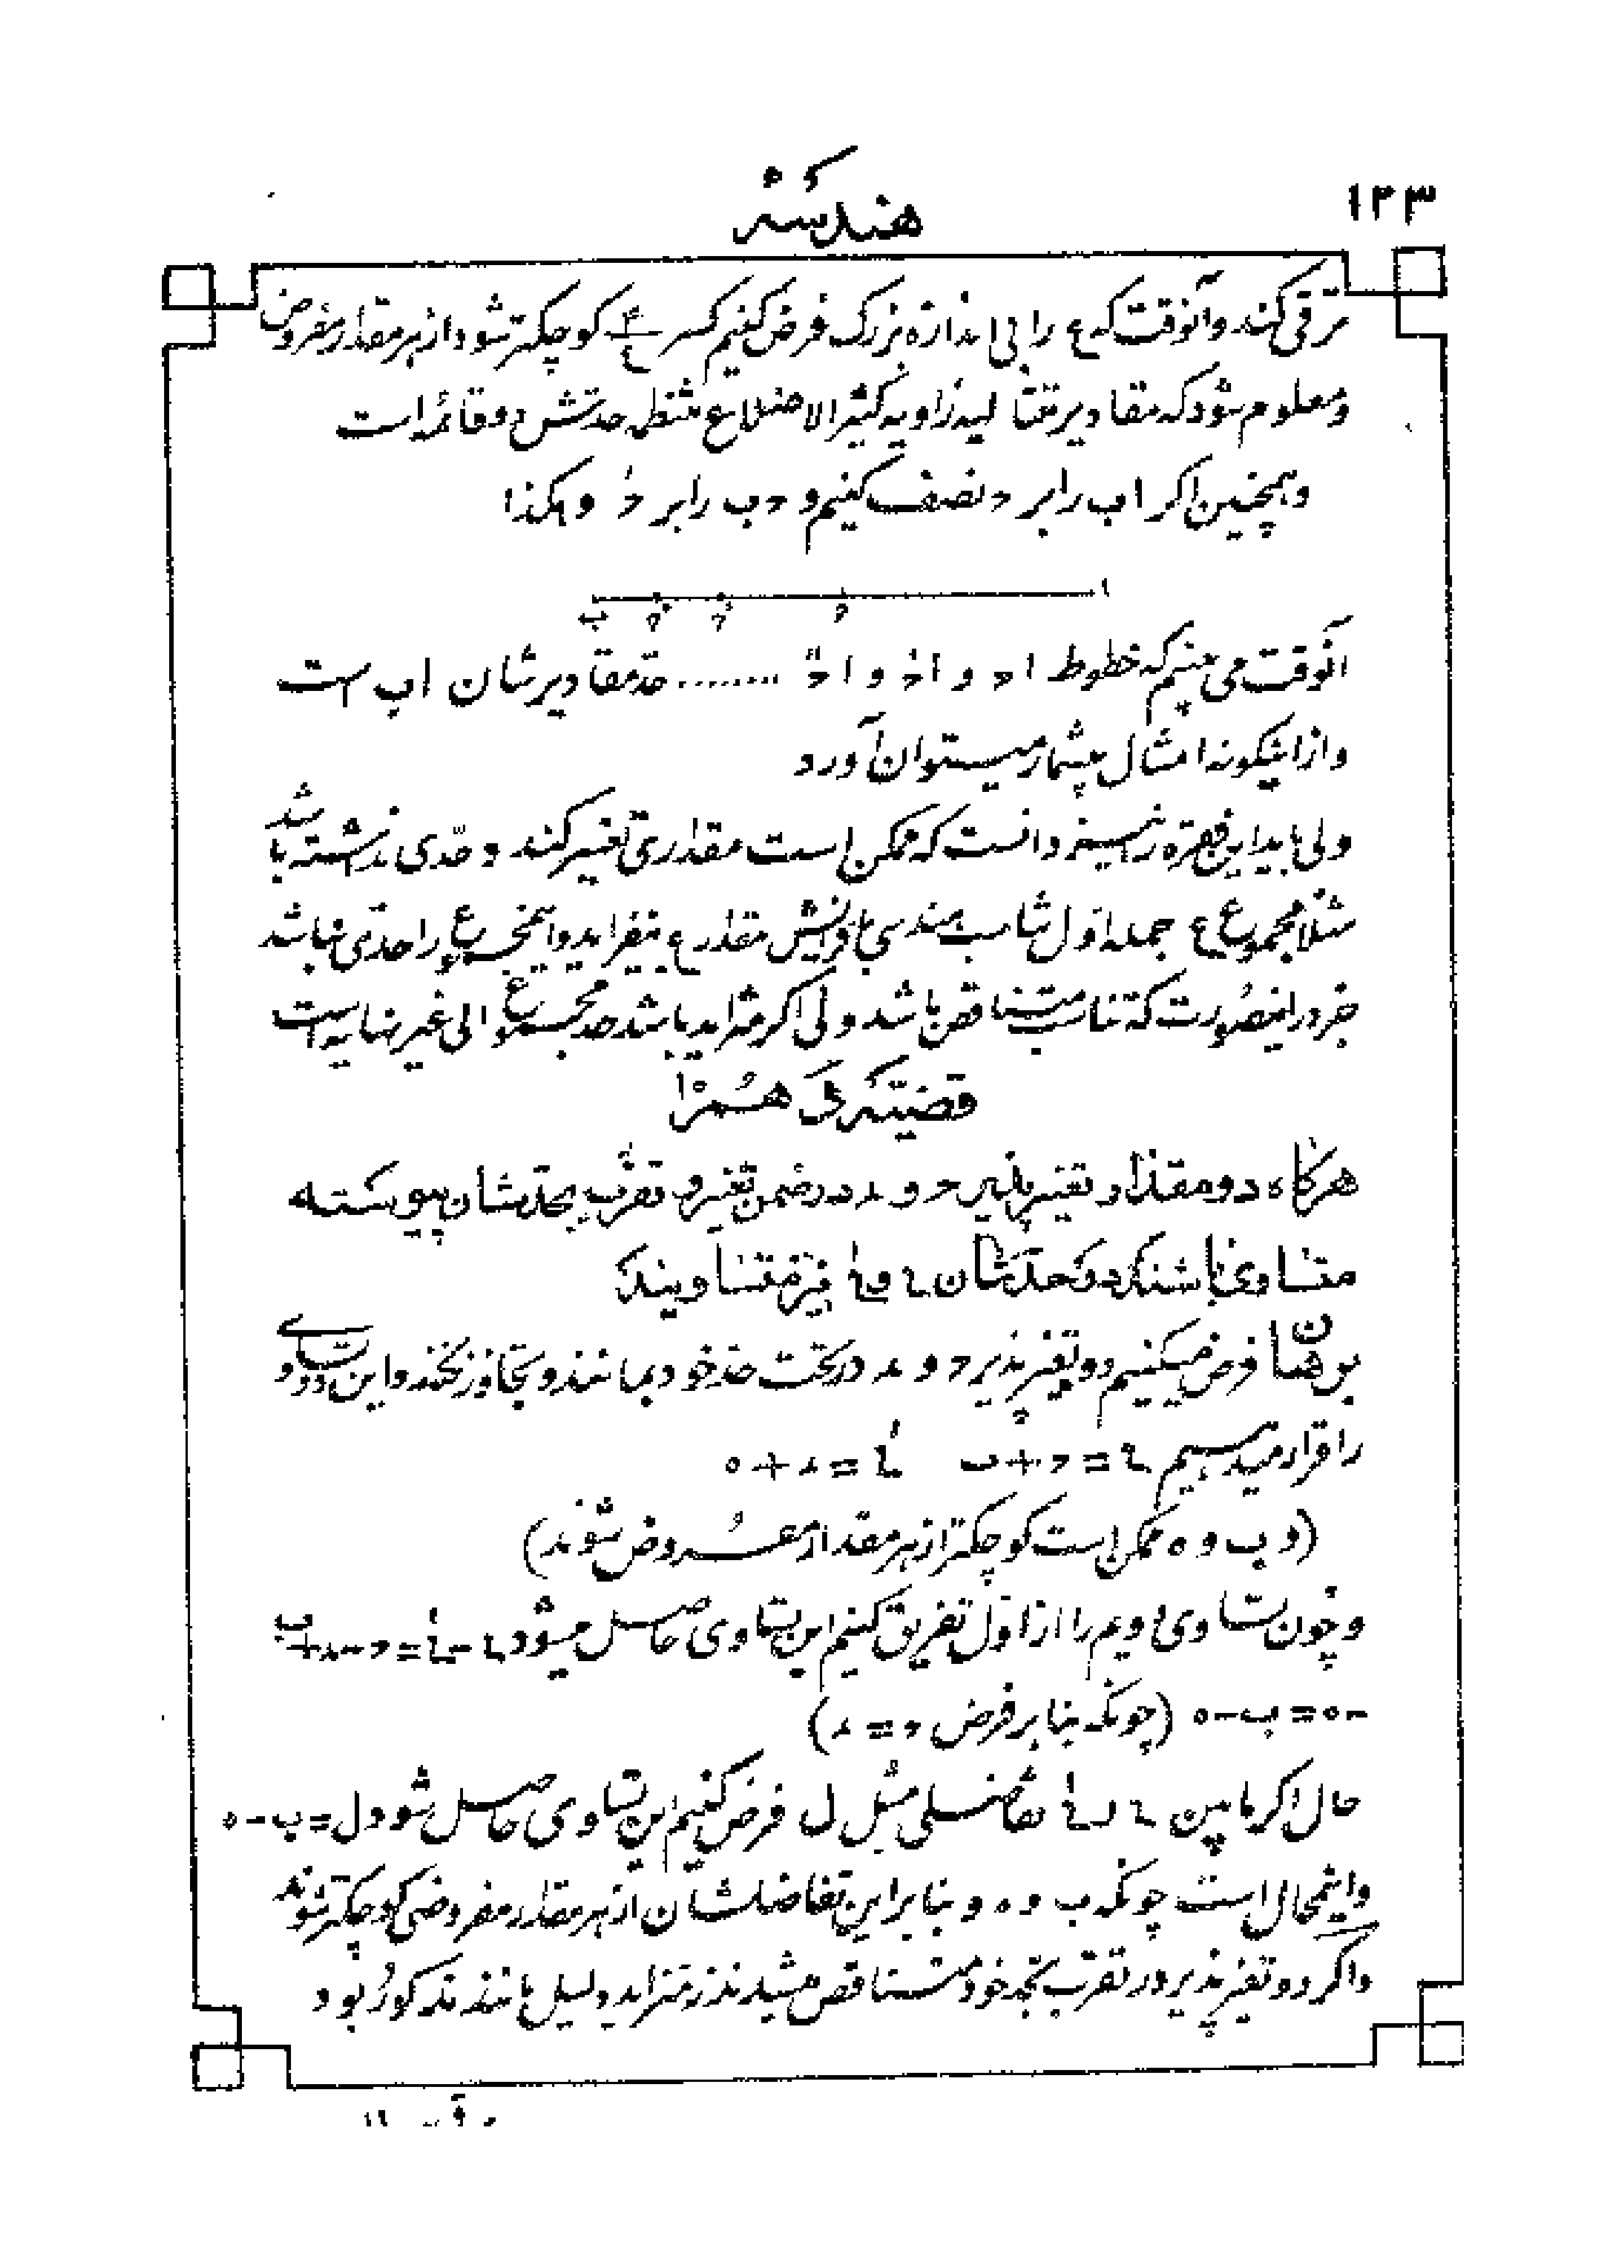 ۱۲۳
هندسه
ترقی کند و آنوقت که ع را بی اندازه بزرگ فرض کنیم کسر ۴/ع کوچکتر شود از هر مقدار مفروض
و معلوم شود که مقادیر متتالیه زاویه کثیر الاضلاع منتظم حدتش دو قائمه است
و همچنین اگر اب را بر د نصف کنیم و دب را بر دَ و هکذا
ا د دَ دً ب
آنوقت می بینیم که خطوط اد و ادَ و ادً ........ حد مقادیرشان اب است
و از اینگونه امثال بیشمار میتوان آورد
ولی باید این فقره را نیز دانست که ممکن است مقداری تغییر کند و حدّی نداشته باشد
مثلا مجموع ع جمله اول تناسب هندسی با افزایش مقدار ع میفزاید و این مجموع را حدّی نباشد
جز در اینصورت که تناسب متناقص باشد ولی اگر متزاید باشد حد مجموع الی غیر نهایه است
قضیه
هرگاه دو مقدار تغییر پذیر د و ر در ضمن تغییر و تقرّب بحدشان پیوسته
متساوی باشند دو حدشان ﻟ و ﻟَ نیز متساویند
برهان فرض میکنیم دو تغییر پذیر د و ر در تحت حد خود بمانند و تجاوز نکنند و این دو تساوی
را قرار میدهیم ﻟ = د + ب ﻟَ = ر + ه
(و ب و ه ممکن است کوچکتر از هر مقدار مفروض شوند)
و چون تساوی دویم را از اول تفریق کنیم این تساوی حاصل میشود ﻟ - ﻟَ = د - ر + ب
- ه = ب - ه (چونکه بنا بر فرض د = ر)
حال اگر مابین ﻟ و ﻟَ تفاضلی مثل ل فرض کنیم این تساوی حاصل شود ل = ب - ه
و این محال است چونکه ب و ه و بنابراین تفاضلشان از هر مقدار مفروضی کوچکتر شوند
و اگر دو تغییر پذیر در تقرب بحد خود متناقص میشدند نه متزاید دلیل مانند مذکور بود